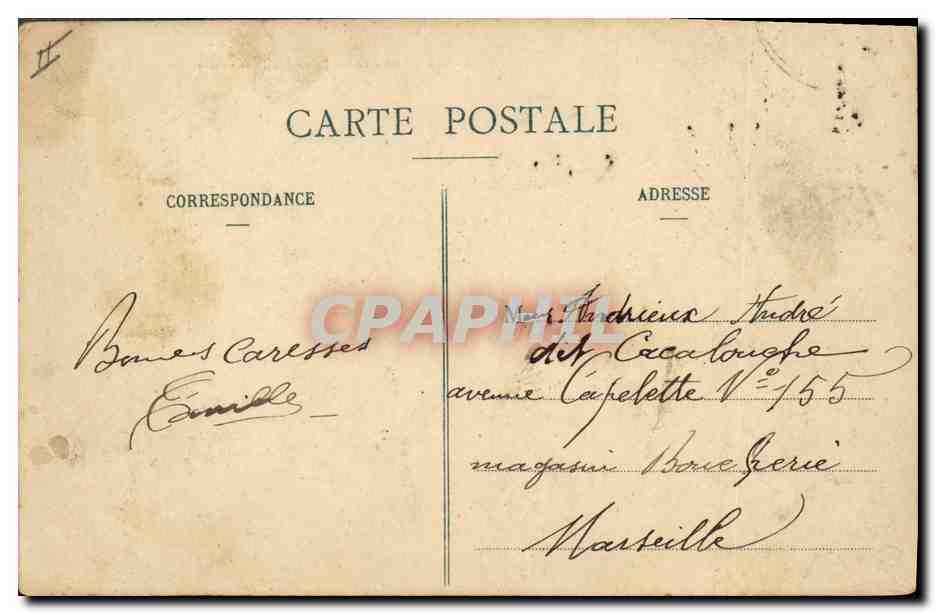 II
CARTE POSTALE
CORRESPONDANCE
ADRESSE
Bonnes Caresses
Emille
M Andrieux André
dit Cacalouche
avenue Capelette N° 155
magasin Boucherie
Marseille
CPAPHIL